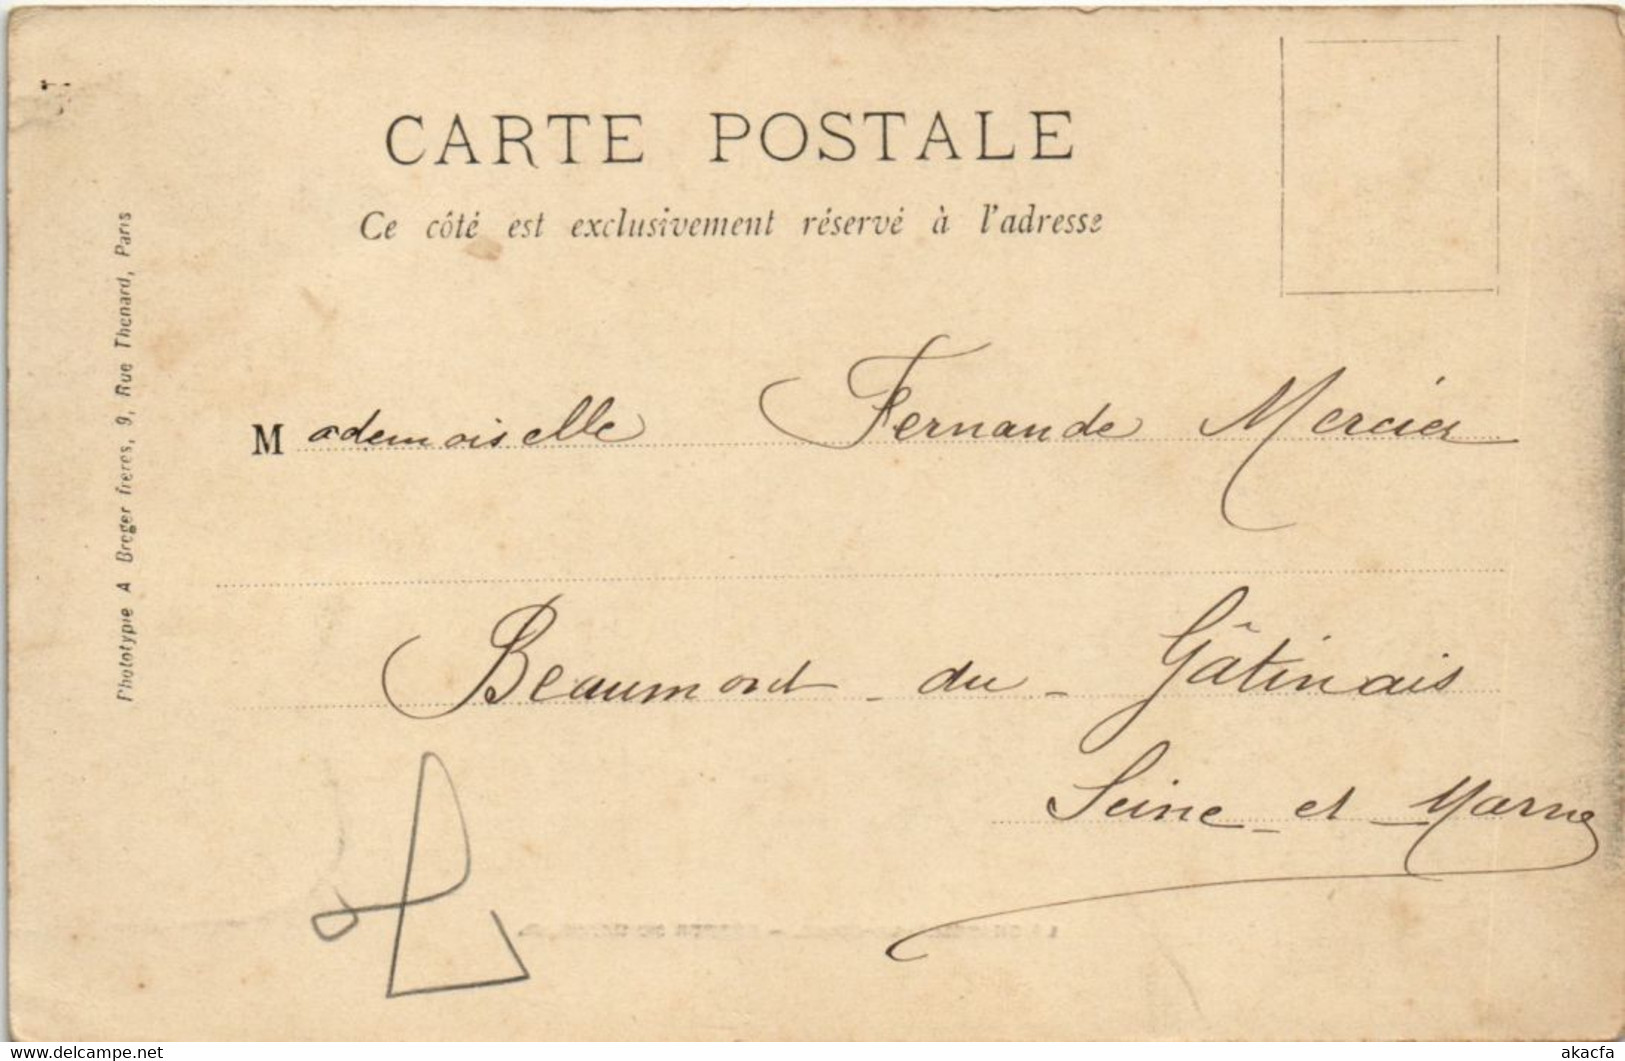 CARTE POSTALE
Ce côté est exclusivement réservé à l'adresse
Mademoiselle Fernande Mercier
Beaumont-du-Gâtinais
Seine-et-Marne
Phototypie A Breger frères, 9, Rue Thenard, Paris
delcampe.net
akacfa